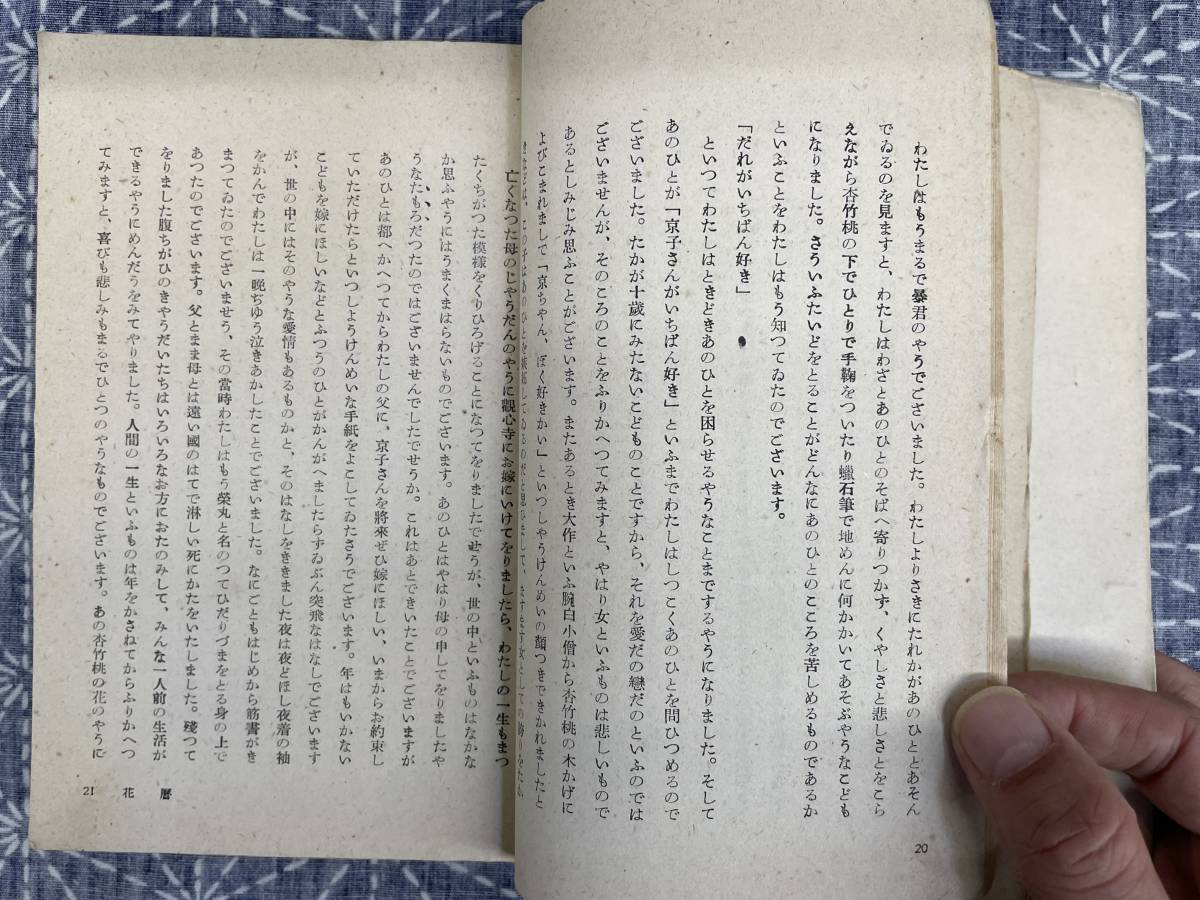 わたしはもうまるで暴君のやうでございました。わたしよりさきにたれかがあのひととあそん
でゐるのを見ますと、わたしはわざとあのひとのそばへ寄りつかず、くやしさと悲しさとをこら
えながら杏竹桃の下でひとりで手鞠をついたり蠟石筆で地めんに何かかいてあそぶやうなこども
になりました。さういふたいどをとることがどんなにあのひとのこころを苦しめるものであるか
といふことをわたしはもう知つてゐたのでございます。
「だれがいちばん好き」
といつてわたしはときどきあのひとを困らせるやうなことまでするやうになりました。そして
あのひとが「京子さんがいちばん好き」といふまでわたしはしつこくあのひとを問ひつめるので
ございました。たかが十歲にみたないこどものことですから、それを愛だの戀だのといふのでは
ございませんが、そのころのことをふりかへつてみますと、やはり女といふものは悲しいもので
あるとしみじみ思ふことがございます。またあるとき大作といふ腕白小僧から杏竹桃の木かげに
よびこまれまして「京ちやん、ぼく好きかい」といつしやうけんめいの顏つきできかれましたと
20
亡くなつた母のじやうだんのやうに觀心寺にお嫁にいけてをりましたら、わたしの一生もまつ
たくちがつた模樣をくりひろげることになつてをりましたでせうが、世の中といふものはなかな
か思ふやうにはうまくまはらないものでございます。あのひとはやはり母の申してをりましたや
うなたもろだつたのではございませんでしたでせうか。これはあとできいたことでございますが
あのひとは都へかへつてからわたしの父に、京子さんを將來ぜひ嫁にほしい、いまからお約束し
ていただけたらといつしようけんめいな手紙をよこしてゐたさうでございます。年はもいかない
こどもを嫁にほしいなどとふつうのひとがかんがへましたらずゐぶん突飛なはなしでございます
が、世の中にはそのやうな愛情もあるものかと、そのはなしをききました夜は夜どほし夜着の袖
をかんでわたしは一晚ぢゆう泣きあかしたことでございました。なにごともはじめから筋書がき
まつてゐたのでございませう、その當時わたしはもう榮丸と名のつてひだりづまをとる身の上で
あつたのでございます。父とまま母とは遠い國のはてで淋しい死にかたをいたしました。殘つて
をりました腹ちがひのきやうだいたちはいろいろなお方におたのみして、みんな一人前の生活が
できるやうにめんだうをみてやりました。人間の一生といふものは年をかさねてからふりかへつ
てみますと、喜びも悲しみもまるでひとつのやうなものでございます。あの杏竹桃の花のやうに
21 花曆